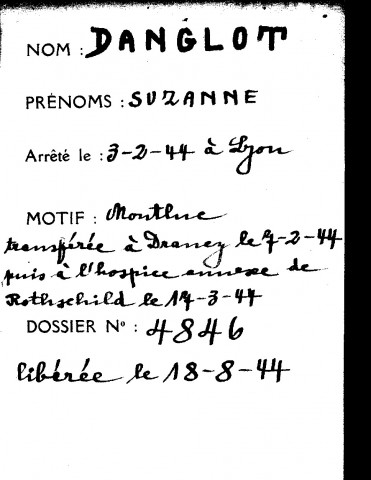 NOM : DANGLOT
PRÉNOMS : SUZANNE
Arrêté le : 3-2-44 à Lyon
MOTIF : Montluc
transférée à Drancy le 7-2-44
puis à l'hospice annexe de
Rothschild le 17-3-44
DOSSIER N° : 4846
libérée le 18-8-44